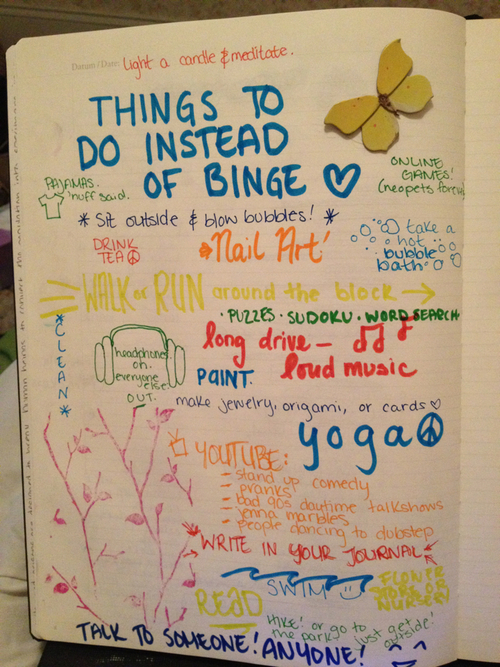 Datum / Date:
Light a candle & meditate.
THINGS TO
DO INSTEAD
OF BINGE
ONLINE
GAMES!
(neopets forever)
PAJAMAS.
'nuff said.
* Sit outside & blow bubbles! *
DRINK
TEA
Nail Art!
take a
hot
bubble
bath
WALK or RUN around the block
• PUZZES • SUDOKU • WORD SEARCH
* CLEAN *
headphones
on.
everyone
else
OUT.
long drive -
loud music
PAINT.
make jewelry, origami, or cards
yoga
YOUTUBE:
- stand up comedy
- pranks
- bad 90s daytime talkshows
- Jenna marbles
- people dancing to dubstep
WRITE IN YOUR JOURNAL
SWIM
FLOWER
STORE OR
NURSERY
READ
HIKE! or go to
the park!
just get
outside!
TALK TO SOMEONE! ANYONE!